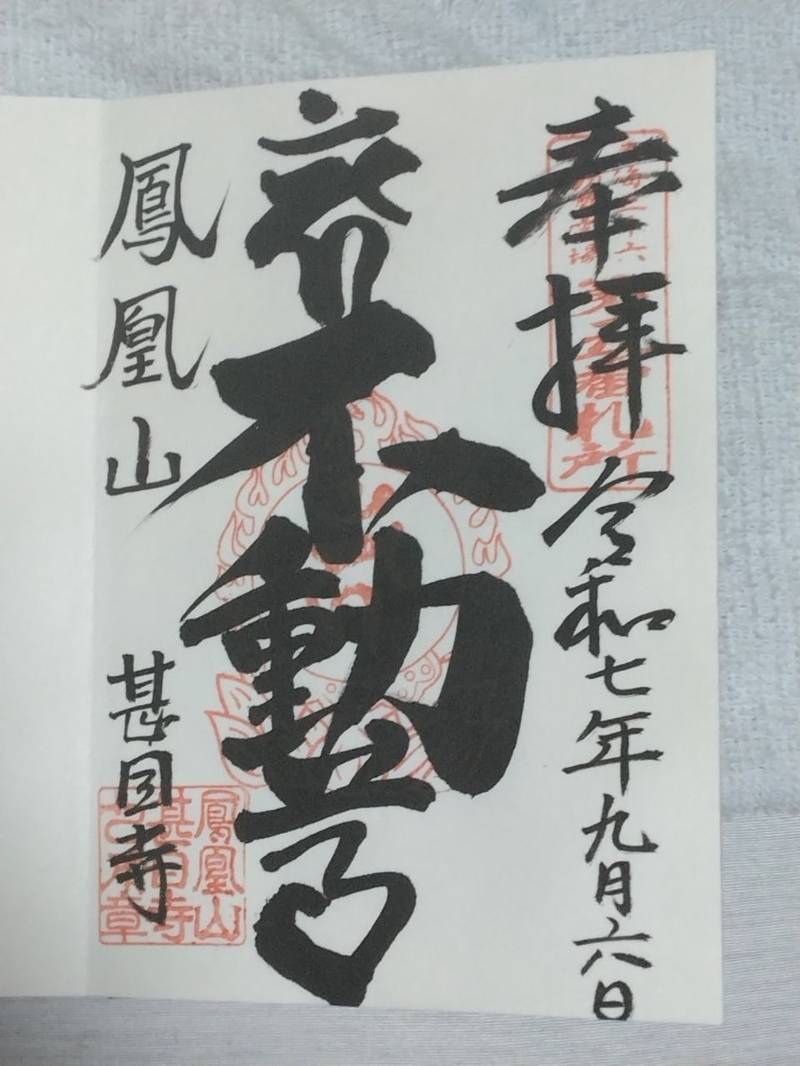 奉拝
令和七年九月六日
不動尊
鳳凰山
甚目寺
番札所
鳳凰山
甚目寺